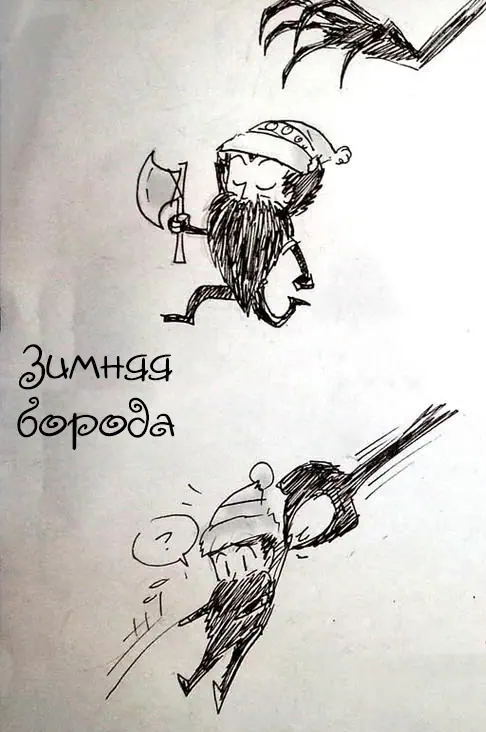 Зимняя
борода
?